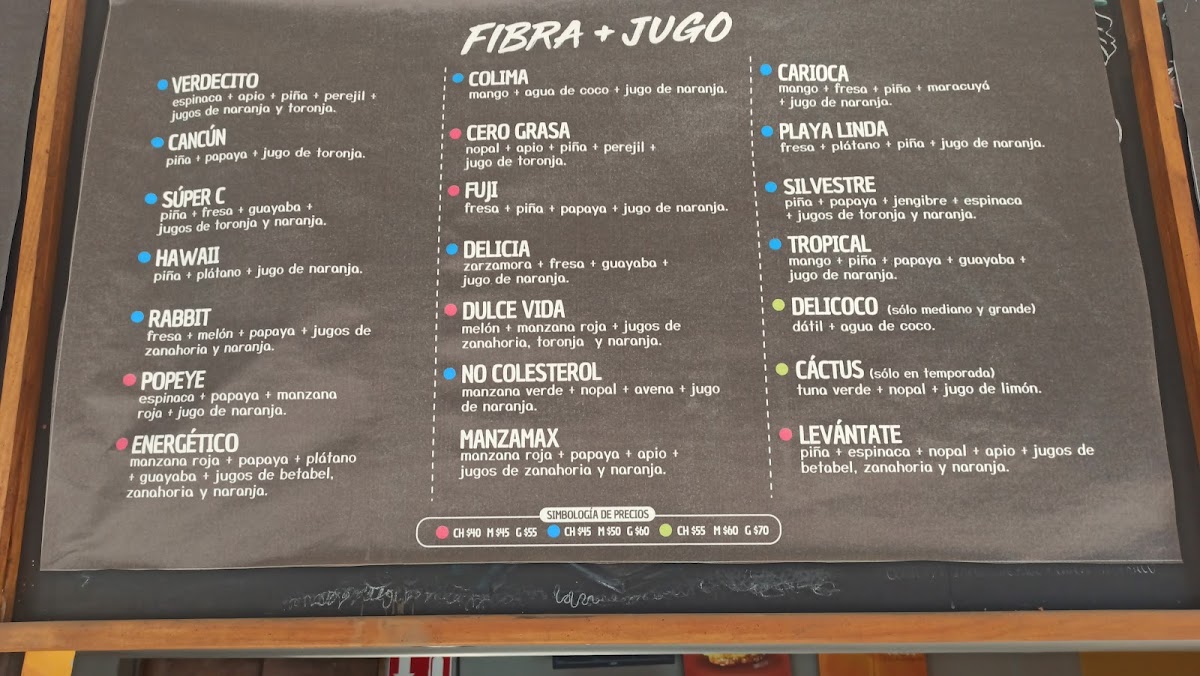 FIBRA + JUGO
VERDECITO
espinaca + apio + piña + perejil +
jugos de naranja y toronja.
CANCÚN
piña + papaya + jugo de toronja.
SÚPER C
piña + fresa + guayaba +
jugos de toronja y naranja.
HAWAII
piña + plátano + jugo de naranja.
RABBIT
fresa + melón + papaya + jugos de
zanahoria y naranja.
POPEYE
espinaca + papaya + manzana
roja + jugo de naranja.
ENERGÉTICO
manzana roja + papaya + plátano
+ guayaba + jugos de betabel,
zanahoria y naranja.
COLIMA
mango + agua de coco + jugo de naranja.
CERO GRASA
nopal + apio + piña + perejil +
jugo de toronja.
FUJI
fresa + piña + papaya + jugo de naranja.
DELICIA
zarzamora + fresa + guayaba +
jugo de naranja.
DULCE VIDA
melón + manzana roja + jugos de
zanahoria, toronja y naranja.
NO COLESTEROL
manzana verde + nopal + avena + jugo
de naranja.
MANZAMAX
manzana roja + papaya + apio +
jugos de zanahoria y naranja.
CARIOCA
mango + fresa + piña + maracuyá
+ jugo de naranja.
PLAYA LINDA
fresa + plátano + piña + jugo de naranja.
SILVESTRE
piña + papaya + jengibre + espinaca
+ jugos de toronja y naranja.
TROPICAL
mango + piña + papaya + guayaba +
jugo de naranja.
DELICOCO (sólo mediano y grande)
dátil + agua de coco.
CÁCTUS (sólo en temporada)
tuna verde + nopal + jugo de limón.
LEVÁNTATE
piña + espinaca + nopal + apio + jugos de
betabel, zanahoria y naranja.
SIMBOLOGÍA DE PRECIOS
CH $40 M $45 G $55 CH $45 M $50 G $60 CH $55 M $60 G $70